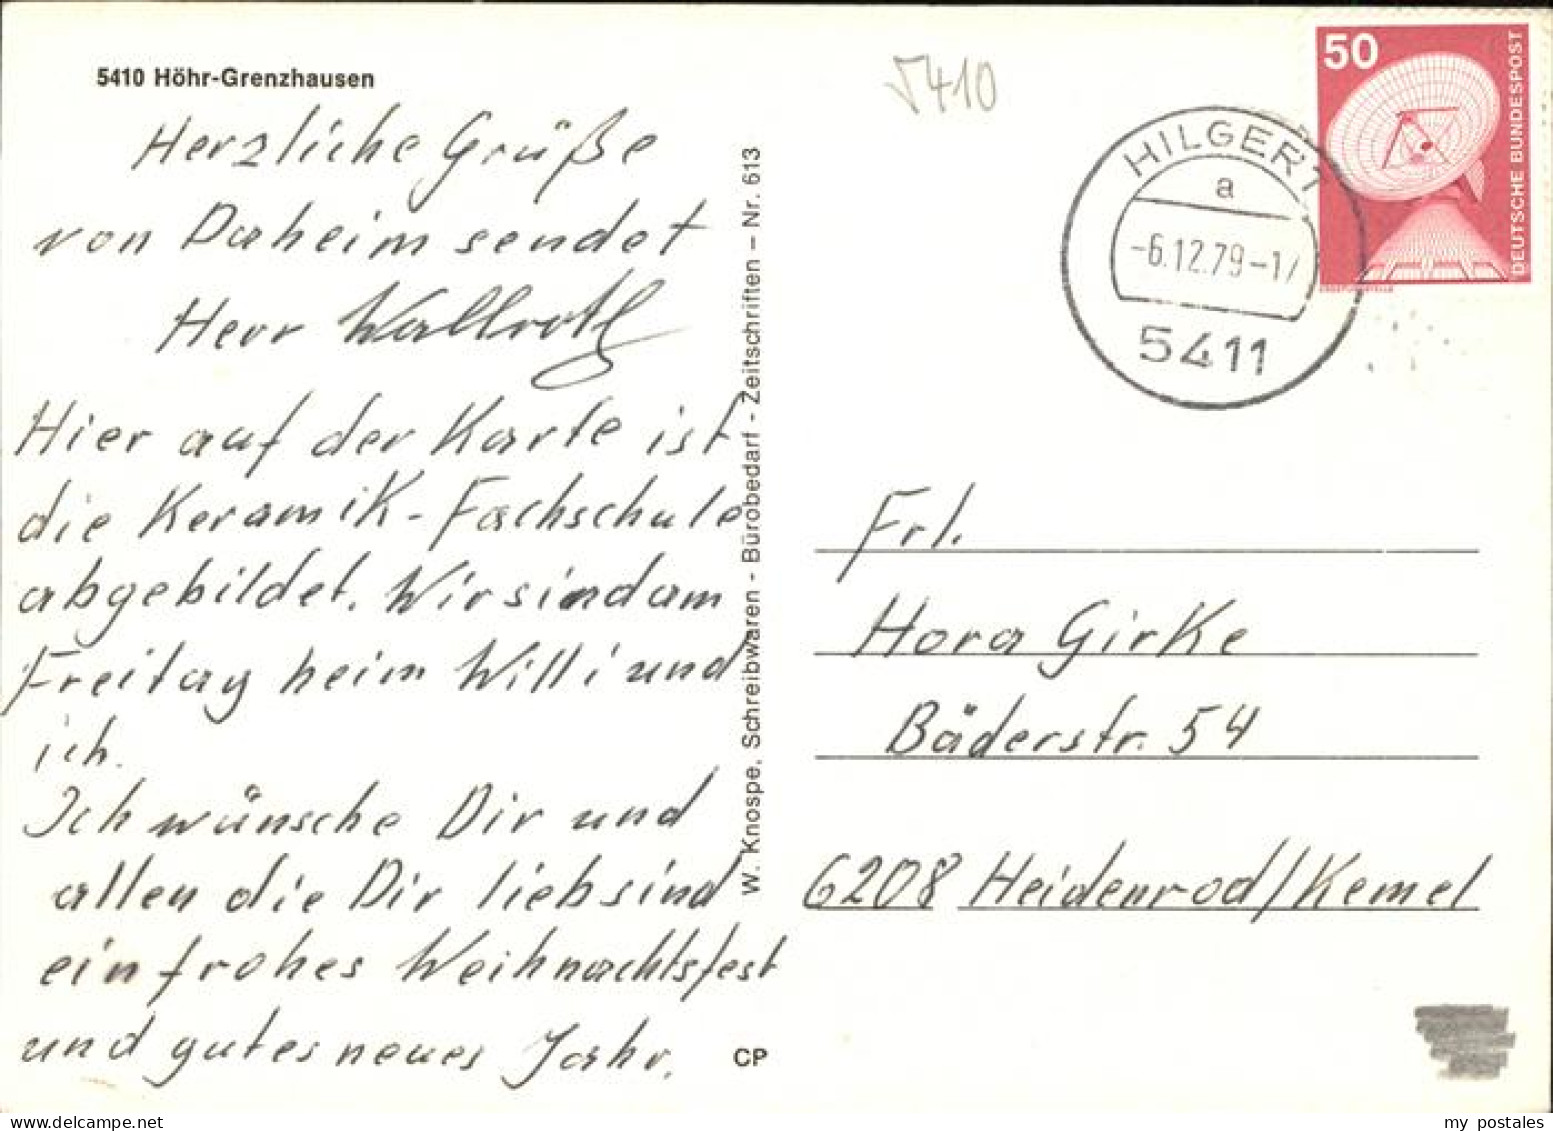 5410 Höhr-Grenzhausen
Herzliche Grüße
von Daheim sendet
Herr Wallroth
Hier auf der Karte ist
die Keramik-Fachschule
abgebildet. Wir sind am
Freitag heim Willi und
ich.
Ich wünsche Dir und
allen die Dir lieb sind
ein frohes Weihnachtsfest
und gutes neues Jahr.
W. Knospe, Schreibwaren - Bürobedarf - Zeitschriften – Nr. 613
CP
5410
HILGERT
a
-6.12.79-17
5411
50
DEUTSCHE BUNDESPOST
Frl.
Hora Girke
Bäderstr. 54
6208 Heidenrod/Kemel
my postales